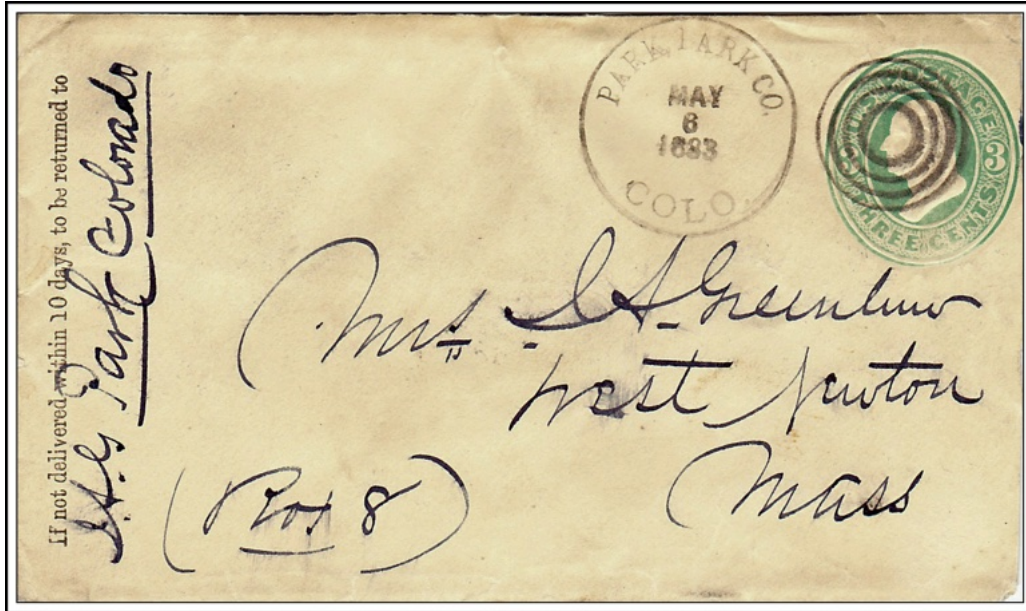 If not delivered within 10 days, to be returned to
Park Colorado
PARK, PARK CO.
MAY
6
1883
COLO.
3 THREE CENTS 3
Mrs
West Newton
Mass
(Box 8)